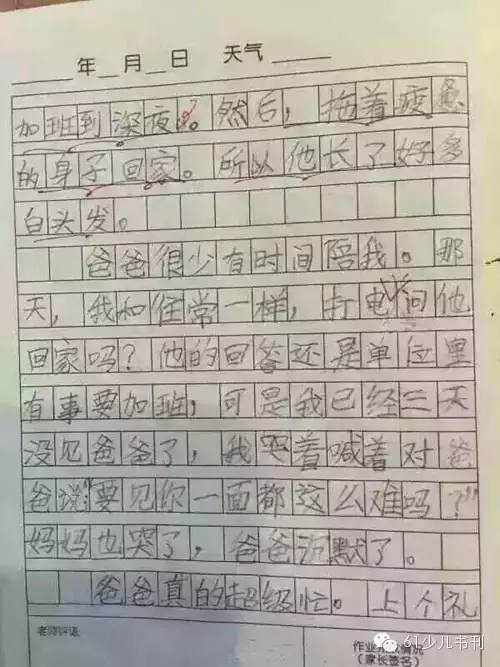 年 月 日 天气
加班到深夜。然后，拖着疲惫
的身子回家。所以他长了好多
白头发。
爸爸很少有时间陪我。那
天，我和往常一样，打电问他
回家吗？他的回答还是单位里
有事要加班，可是我已经三天
没见爸爸了，我哭着喊着对爸
爸说：“要见你一面都这么难吗？”
妈妈也哭了，爸爸沉默了。
爸爸真的超级忙。上个礼
老师评语
作业完成情况
（家长签名）
61少儿书刊